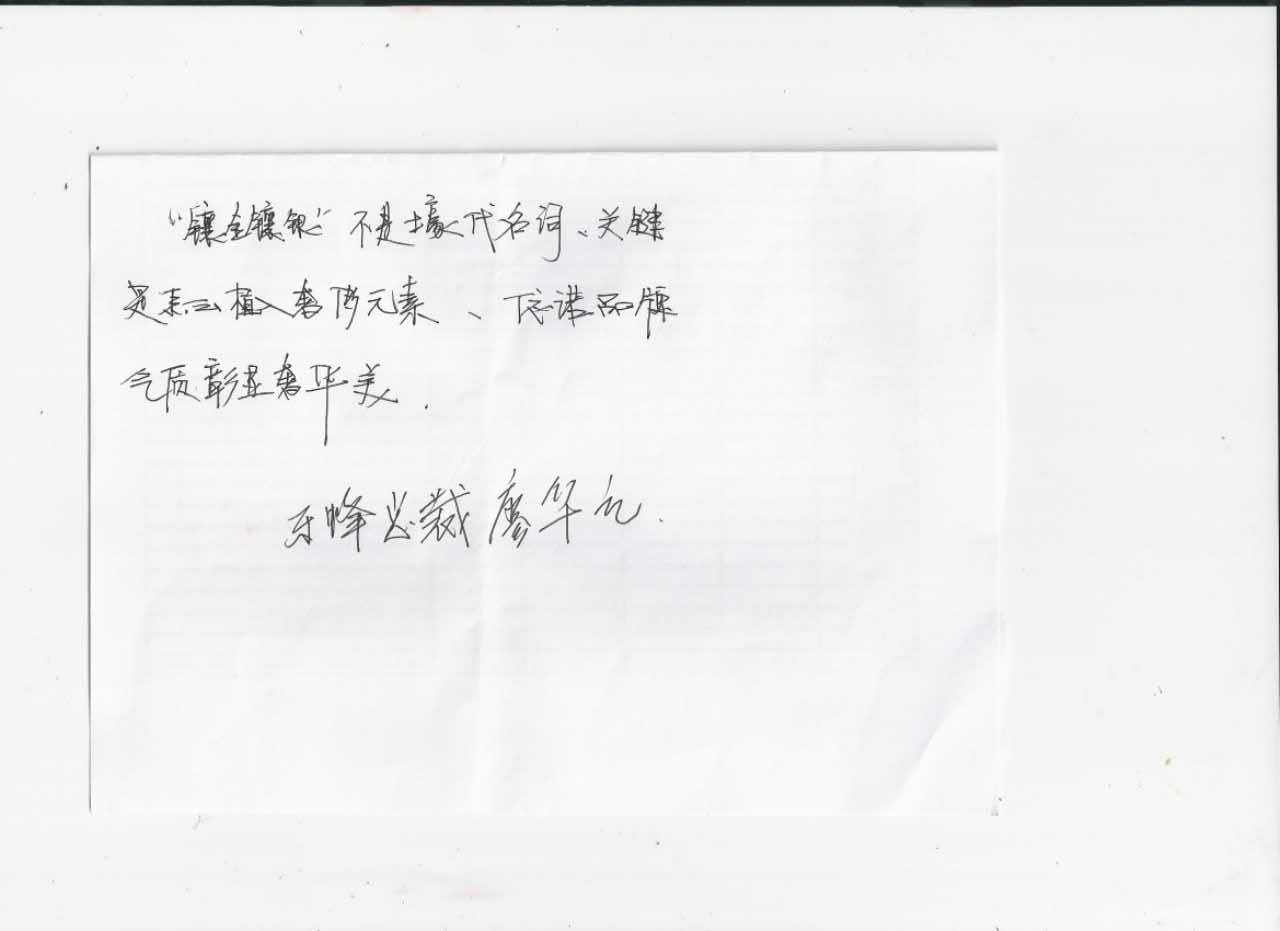 “镶金镶银”不是土豪代名词、关键
是怎么植入奢侈元素、信诺品牌
气质彰显奢华美.
东峰总裁廖华